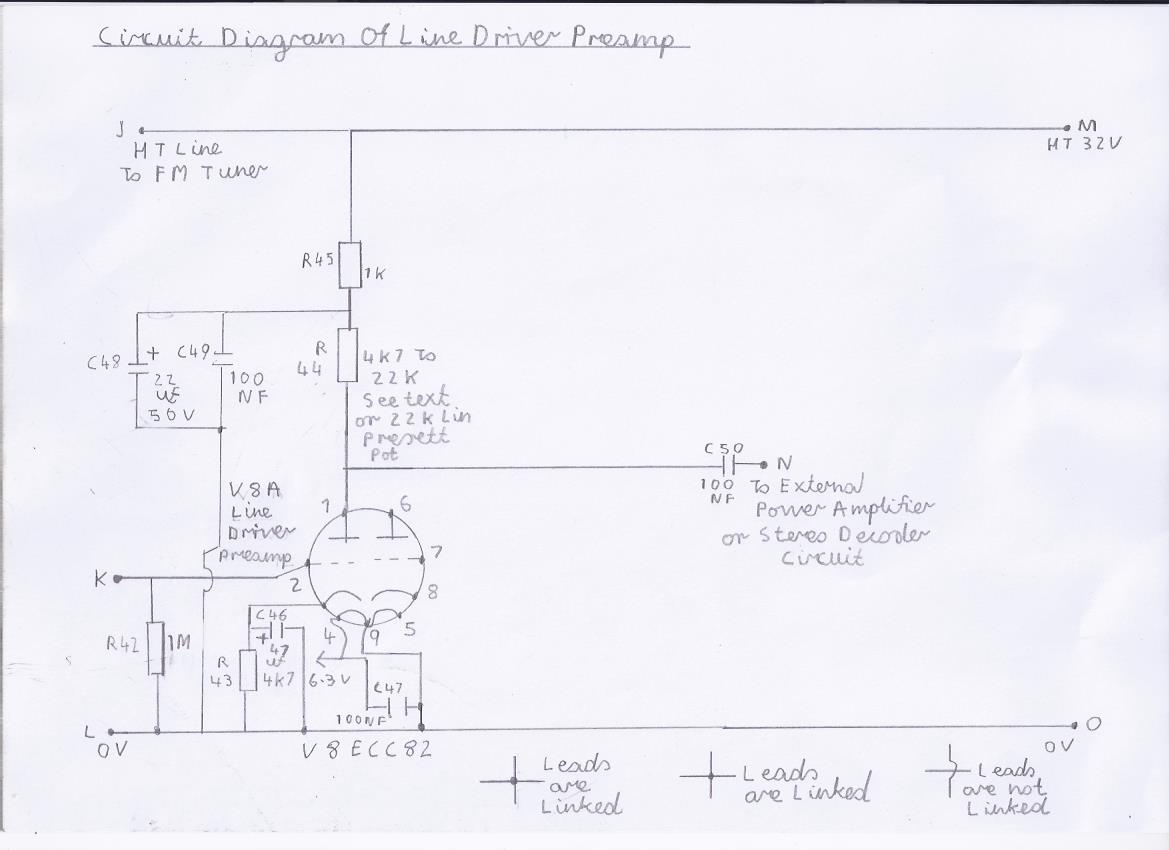 Circuit Diagram Of Line Driver Preamp
J
HT Line
To FM Tuner
M
HT 32V
R45
1K
C48
+
22
uf
50V
C49
100
NF
R
44
4K7 To
22K
See text
or 22k Lin
Presett
Pot
C50
100
NF
N
To External
Power Amplifier
or Stereo Decoder
Circuit
V8A
Line
Driver
Preamp
1
6
7
2
8
4
9
5
K
R42
1M
C46
+
47
uf
R
43
4K7
6.3V
C47
100NF
L
0V
V8 ECC82
O
0V
Leads
are
Linked
Leads
are Linked
Leads
are not
Linked